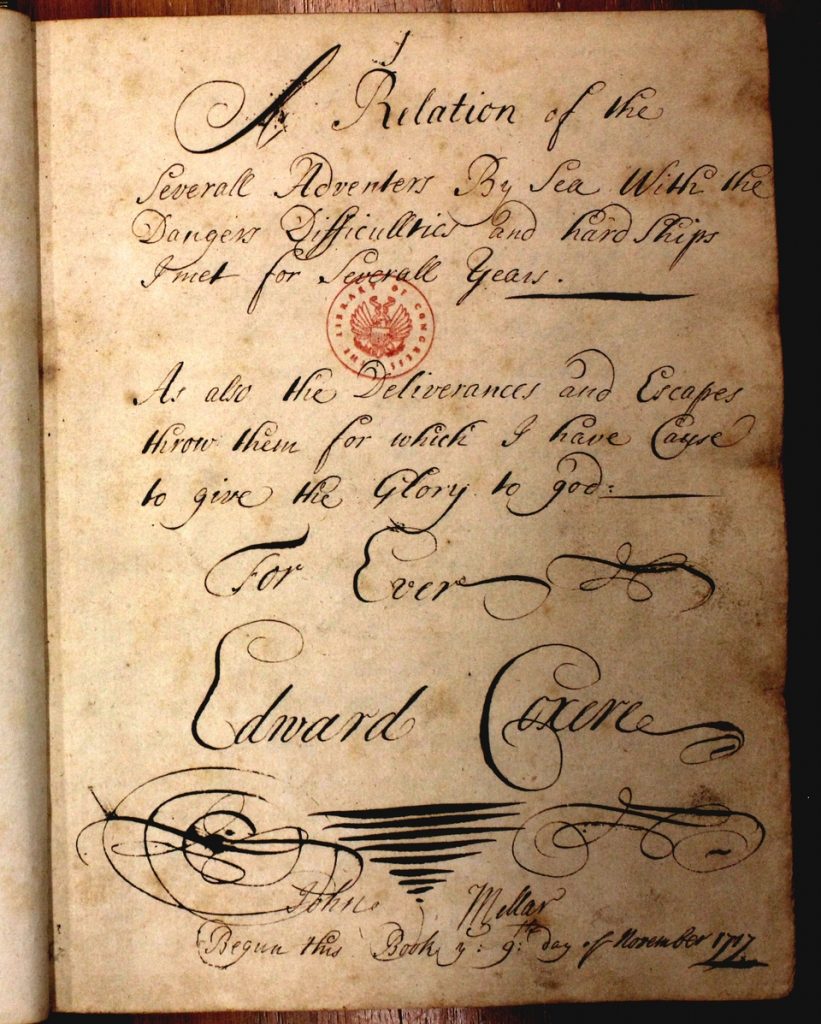 A Relation of the
Severall Adventers By Sea With the
Dangers Difficullties and hard Ships
I met for Severall Years.
THE LIBRARY OF CONGRESS
As also the Deliverances and Escapes
throw them for which I have Cause
to give the Glory to god:
For Ever
Edward Coxere
John Mellar
Begun this Book y: 9:th day of November 1717